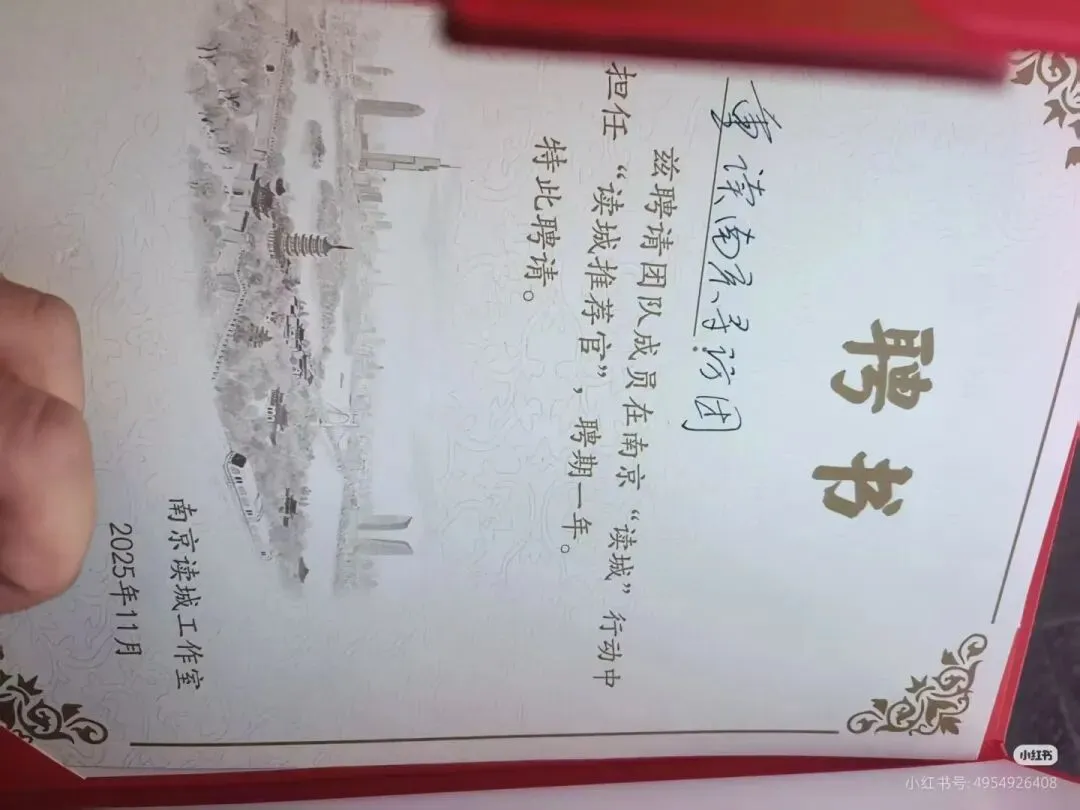 聘书
重读南京寻访团
兹聘请团队成员在南京“读城”行动中
担任“读城推荐官”,聘期一年。
特此聘请。
南京读城工作室
2025年11月
小红书
小红书号: 4954926408